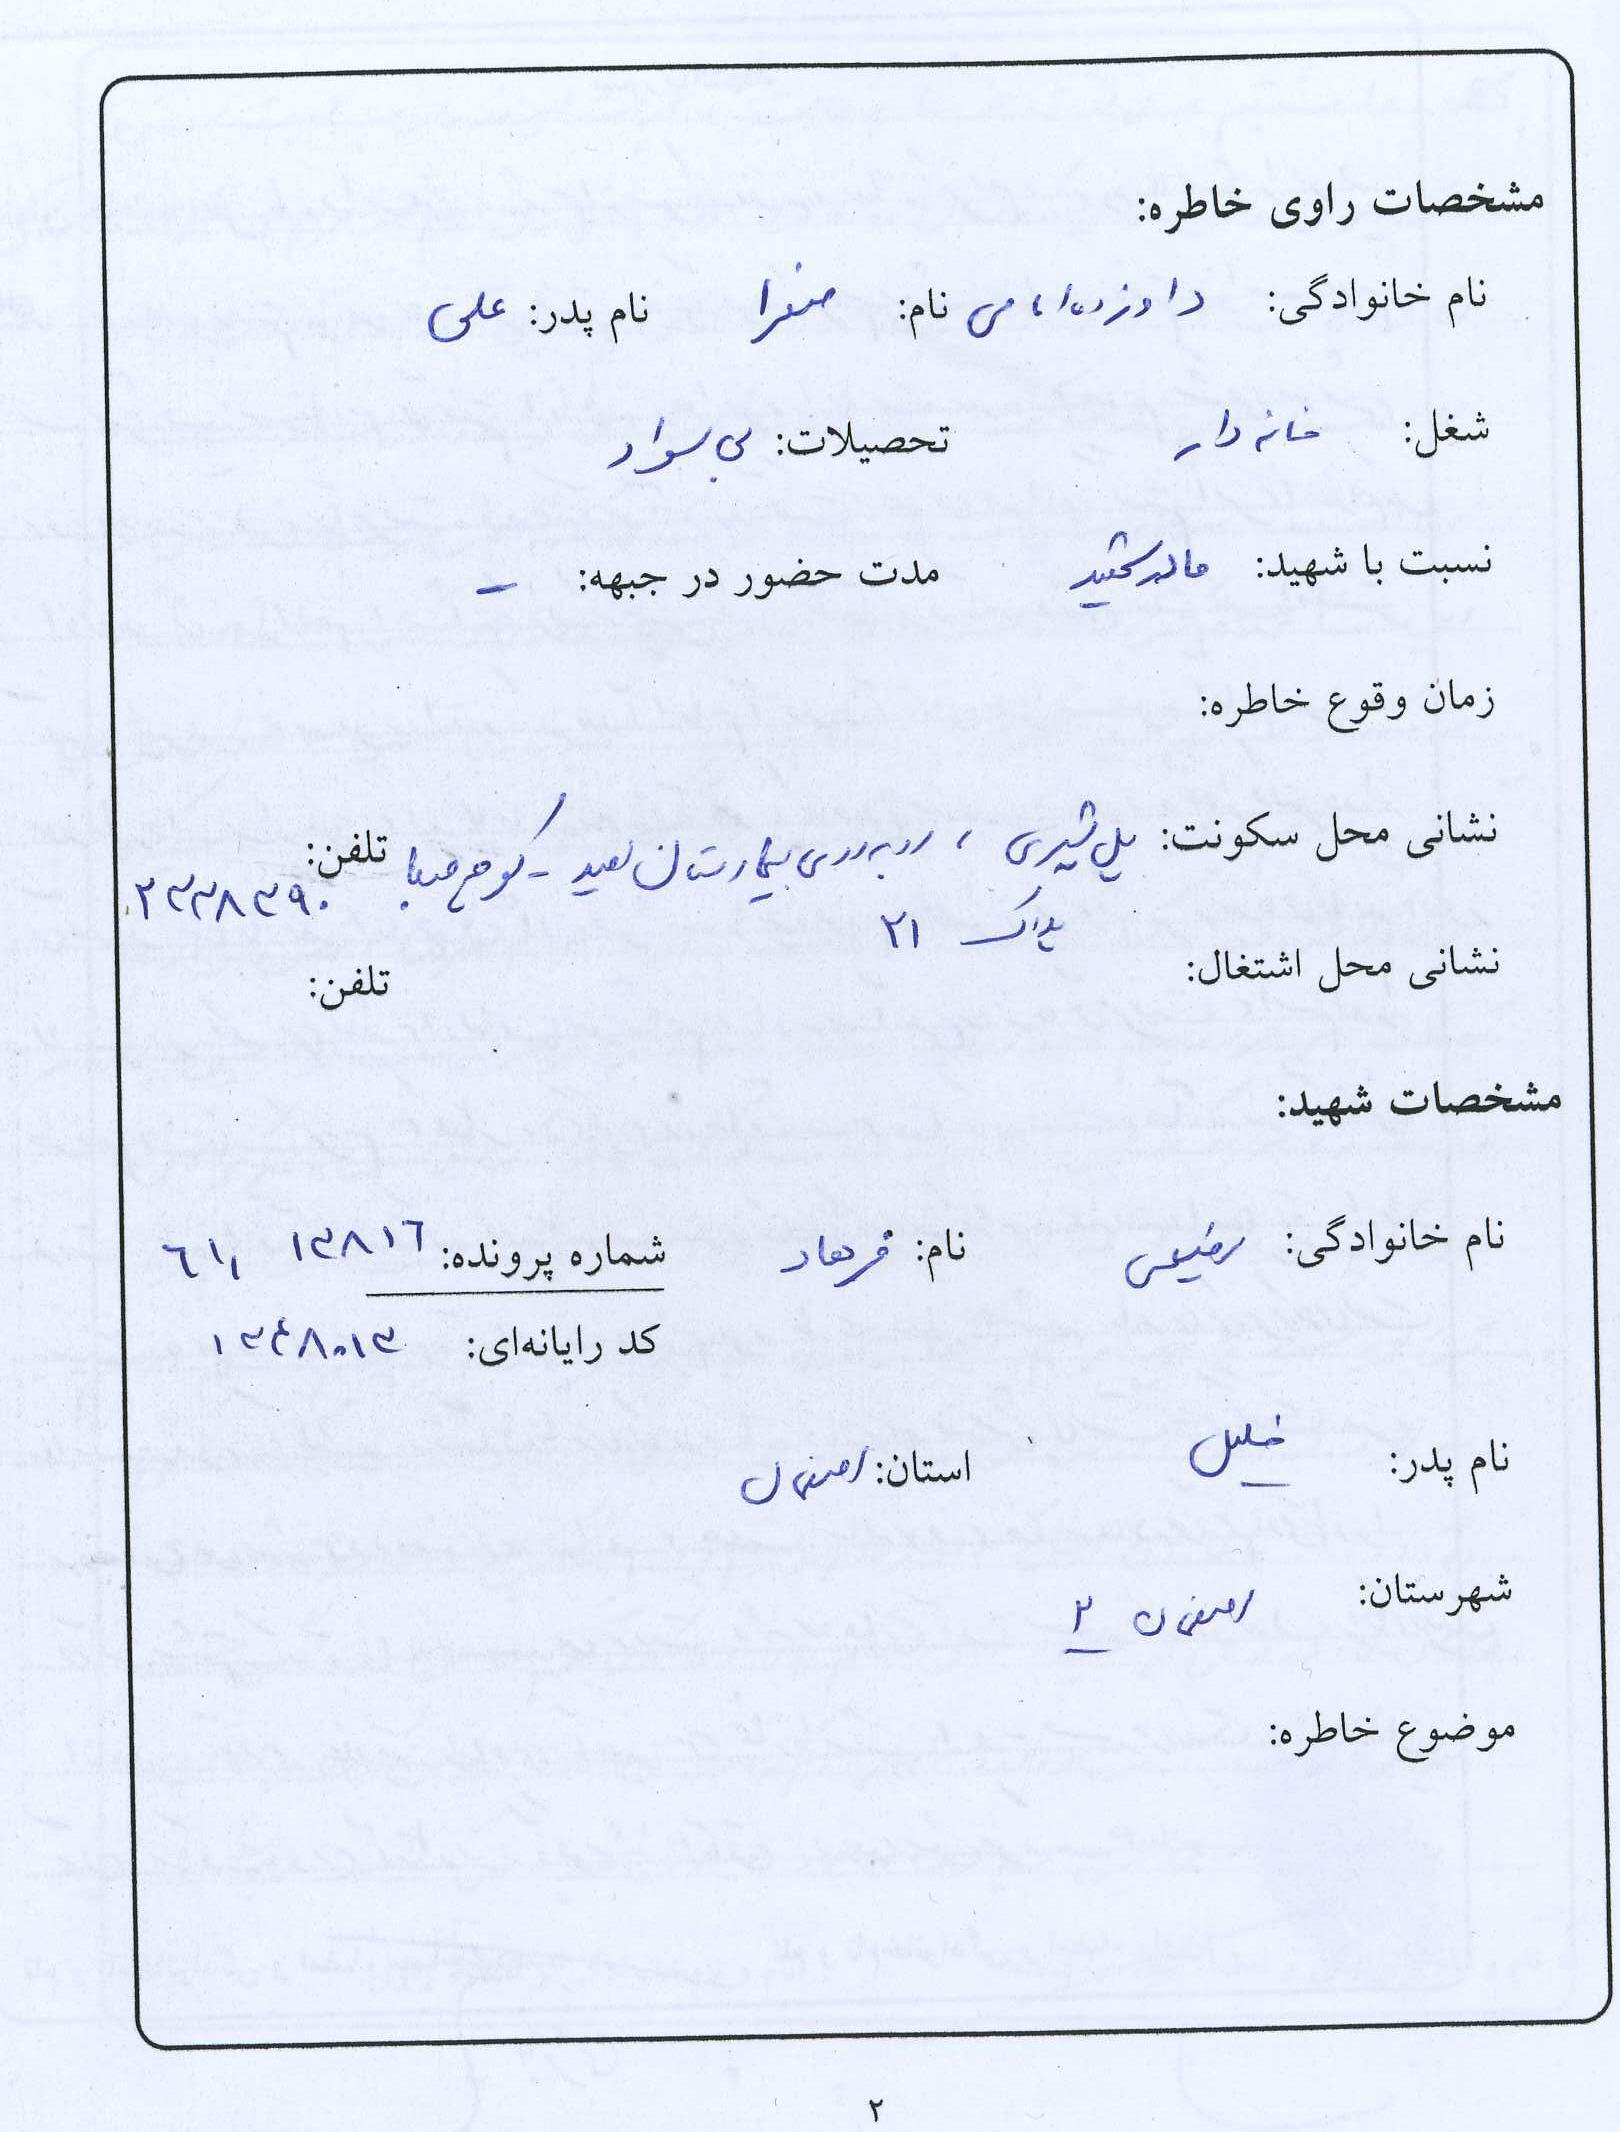 مشخصات راوی خاطره:
نام خانوادگی: دوازده امامی نام: صغرا نام پدر: علی
شغل: خانه دار تحصیلات: بی سواد
نسبت با شهید: مادر شهید مدت حضور در جبهه: –
زمان وقوع خاطره:
نشانی محل سکونت: پل شیری، روبه روی بیمارستان سعید - کوچه صبا تلفن:
پلاک ۲۱ ۲۳۳۸۳۹۰
نشانی محل اشتغال: تلفن:
مشخصات شهید:
نام خانوادگی: رفیعی نام: فرهاد شماره پرونده: ۱۳۸۱۶ ,۶۱
کد رایانه‌ای: ۱۳۴۸۰۱۳
نام پدر: خلیل استان: اصفهان
شهرستان: اصفهان ۲
موضوع خاطره:
۲